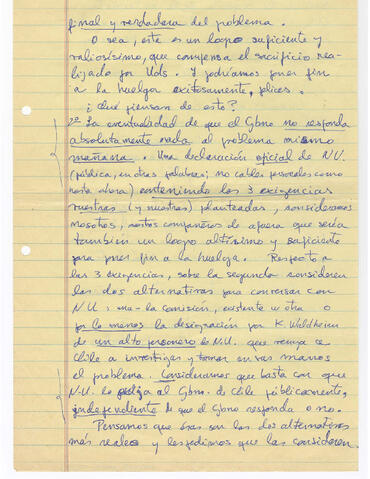 final y verdadera del problema.
O sea, éste es un logro suficiente y
valiosísimo, que compensa el sacrificio rea-
lizado por Uds. Y podríamos poner fin
a la huelga exitosamente, felices.
¿Qué piensan de esto?
2º La eventualidad de que el Gbno no responda
absolutamente nada al problema mismo
mañana. Una declaración oficial de N.U.
(pública, en otras palabras; no cables personales como
hasta ahora) conteniendo las 3 exigencias
vuestras (y nuestras) planteadas, consideramos
nosotros, vuestros compañeros de afuera que sería
también un logro altísimo y suficiente
para poner fin a la huelga. Respecto a
las 3 exigencias, sobre la segunda consideren
las dos alternativas para conversar con
N.U: una- la comisión, existente u otra o
por lo menos la designación por K. Waldheim
de un alto personero de N.U. que venga a
Chile a investigar y tomar en sus manos
el problema. Consideramos que basta con que
N.U. lo pida al Gbno. de Chile públicamente,
independiente de que el Gbno responda o no.
Pensamos que ésas son las dos alternativas
más reales y les pedimos que las consideren